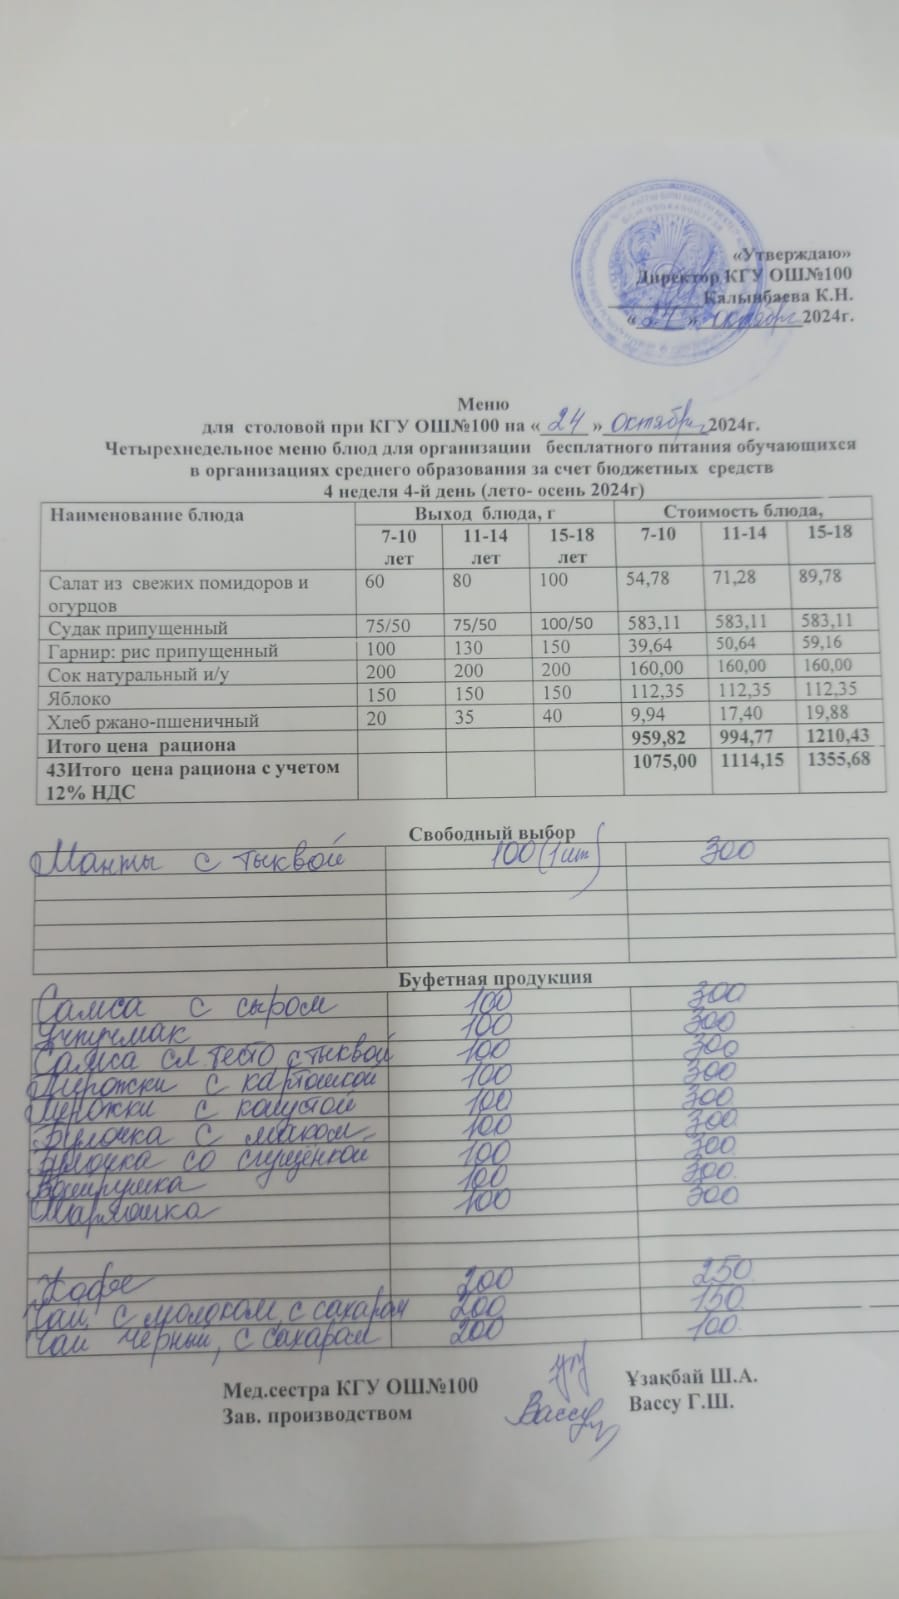 «Утверждаю»
Директор КГУ ОШ№100
Калынбаева К.Н.
« 24 » октября 2024г.
Меню
для столовой при КГУ ОШ№100 на « 24 » октября 2024г.
Четырехнедельное меню блюд для организации бесплатного питания обучающихся
в организациях среднего образования за счет бюджетных средств
4 неделя 4-й день (лето- осень 2024г)
Наименование блюда Выход блюда, г Стоимость блюда,
7-10 лет 11-14 лет 15-18 лет 7-10 11-14 15-18
Салат из свежих помидоров и огурцов 60 80 100 54,78 71,28 89,78
Судак припущенный 75/50 75/50 100/50 583,11 583,11 583,11
Гарнир: рис припущенный 100 130 150 39,64 50,64 59,16
Сок натуральный и/у 200 200 200 160,00 160,00 160,00
Яблоко 150 150 150 112,35 112,35 112,35
Хлеб ржано-пшеничный 20 35 40 9,94 17,40 19,88
Итого цена рациона 959,82 994,77 1210,43
43Итого цена рациона с учетом 12% НДС 1075,00 1114,15 1355,68
Свободный выбор
Манты с тыквой 100 (1шт) 300
Буфетная продукция
Самса с сыром 100 300
Учпучмак 100 300
Самса сл тесто с тыквой 100 300
Пирожки с картошкой 100 300
Пирожки с капустой 100 300
Булочка с маком 100 300
Булочка со сгущенкой 100 300
Ватрушка 100 300
Марлошка 100 300
Кофе 200 250
Чай с молоком, с сахаром 200 150
Чай черный, с сахаром 200 100
Мед.сестра КГУ ОШ№100 Ұзақбай Ш.А.
Зав. производством Вассу Вассу Г.Ш.